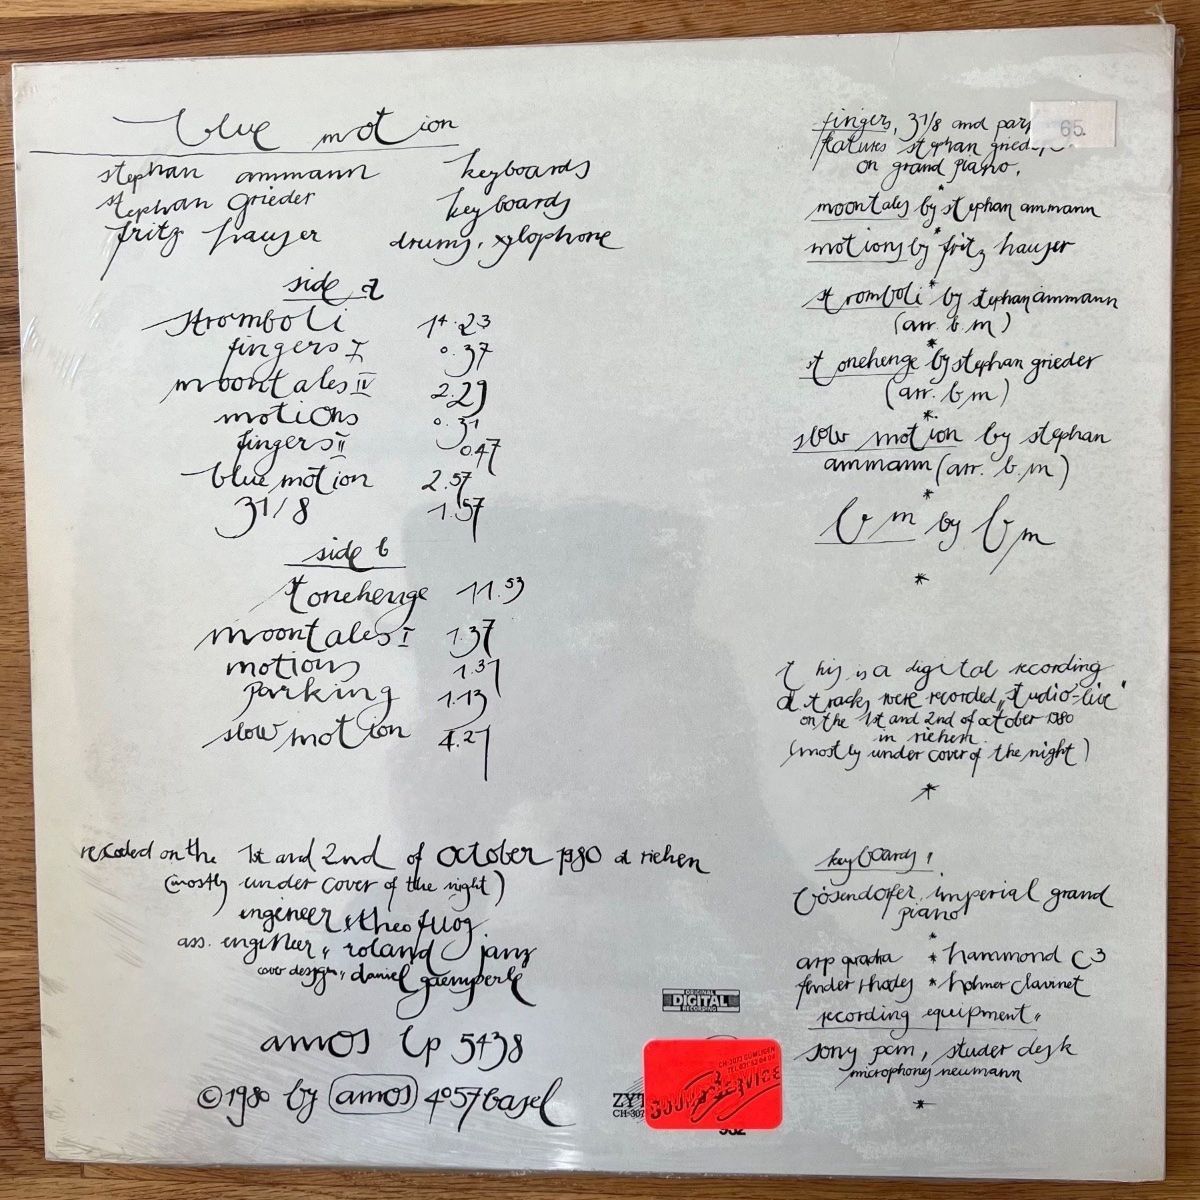 blue motion
stephan ammann keyboards
stephan grieder keyboards
fritz hauser drums, xylophone
side a
stromboli 14.23
fingers I 0.37
moontales IV 2.29
motions 0.31
fingers II 0.47
blue motion 2.57
31/8 1.57
side b
stonehenge 11.53
moontales I 1.37
motions 1.31
parking 1.13
slow motion 4.21
recorded on the 1st and 2nd of october 1980 at riehen
(mostly under cover of the night)
engineer theo fuog
ass. engineer roland janz
cover design daniel gaemperle
amos lp 5438
© 1980 by amos 4057 basel
fingers, 31/8 and
65.
features stephan
on grand piano.
*
moontales by stephan ammann
*
motions by fritz hauser
*
stromboli by stephan ammann
(arr. b.m)
*
stonehenge by stephan grieder
(arr. b.m)
*
slow motion by stephan
ammann (arr. b.m)
*
bm by bm
*
this is a digital recording
all tracks were recorded „studio-live"
on the 1st and 2nd of october 1980
in riehen
(mostly under cover of the night)
*
keyboards:
bösendorfer imperial grand
piano
*
arp quadra * hammond c3
fender rhodes * hohner clavinet
recording equipment
sony pcm, studer desk
microphones neumann
*
ORIGINAL
DIGITAL
RECORDING
CH-3073 GÜMLIGEN
SOUND SERVICE
ZYT
CH-307